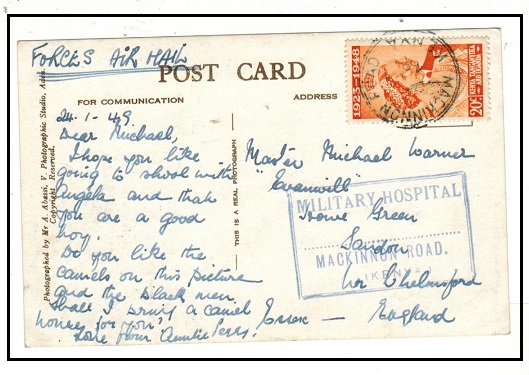 FORCES AIR MAIL
POST CARD
FOR COMMUNICATION
ADDRESS
24-1-49
Dear Michael,
I hope you like
going to school with
Angela and that
you are a good
boy.
Do you like the
camels on this picture
and the black men.
Shall I bring a camel
home for you?
Love from Auntie
Master Michael Warner
Howe Green
Sandon
Nr Chelmsford
Essex — England
MILITARY HOSPITAL
MACKINNON ROAD.
KENYA
1923-1948
KENYA TANGANYIKA
AND UGANDA
20C
MACKINNON
THIS IS A REAL PHOTOGRAPH
Photographed by Mr A. Abassi, V. Photographic Studio, Aden.
Copyright Reserved.